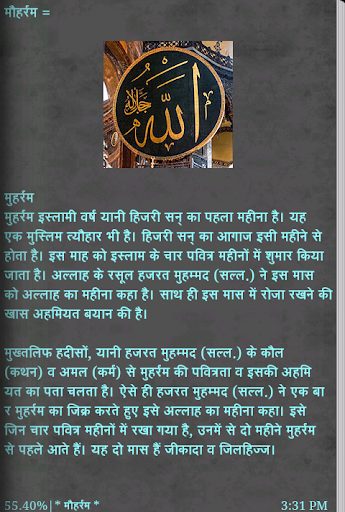 मौहर्रम =
الله جل جلاله
मुहर्रम
मुहर्रम इस्लामी वर्ष यानी हिजरी सन् का पहला महीना है। यह
एक मुस्लिम त्यौहार भी है। हिजरी सन् का आगाज इसी महीने से
होता है। इस माह को इस्लाम के चार पवित्र महीनों में शुमार किया
जाता है। अल्लाह के रसूल हजरत मुहम्मद (सल्ल.) ने इस मास
को अल्लाह का महीना कहा है। साथ ही इस मास में रोजा रखने की
खास अहमियत बयान की है।
मुख्तलिफ हदीसों, यानी हजरत मुहम्मद (सल्ल.) के कौल
(कथन) व अमल (कर्म) से मुहर्रम की पवित्रता व इसकी अहमि
यत का पता चलता है। ऐसे ही हजरत मुहम्मद (सल्ल.) ने एक बा
र मुहर्रम का जिक्र करते हुए इसे अल्लाह का महीना कहा। इसे
जिन चार पवित्र महीनों में रखा गया है, उनमें से दो महीने मुहर्रम
से पहले आते हैं। यह दो मास हैं जीकादा व जिलहिज्ज।
55.40%|* मौहर्रम * 3:31 PM